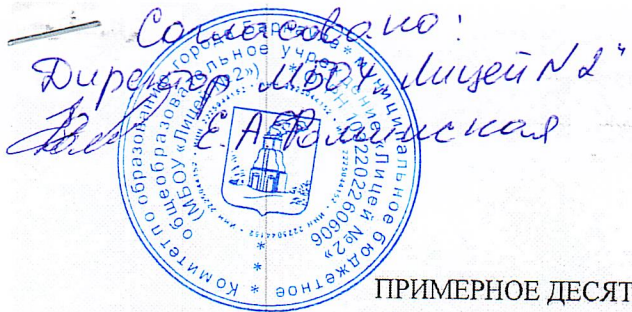 Согласовано:
Директор МБОУ "Лицей №2"
Е.А.
* Комитет по образованию города Барнаула * муниципальное бюджетное
общеобразовательное учреждение «Лицей №2»
(МБОУ «Лицей №2»)
ПРИМЕРНОЕ ДЕСЯТ